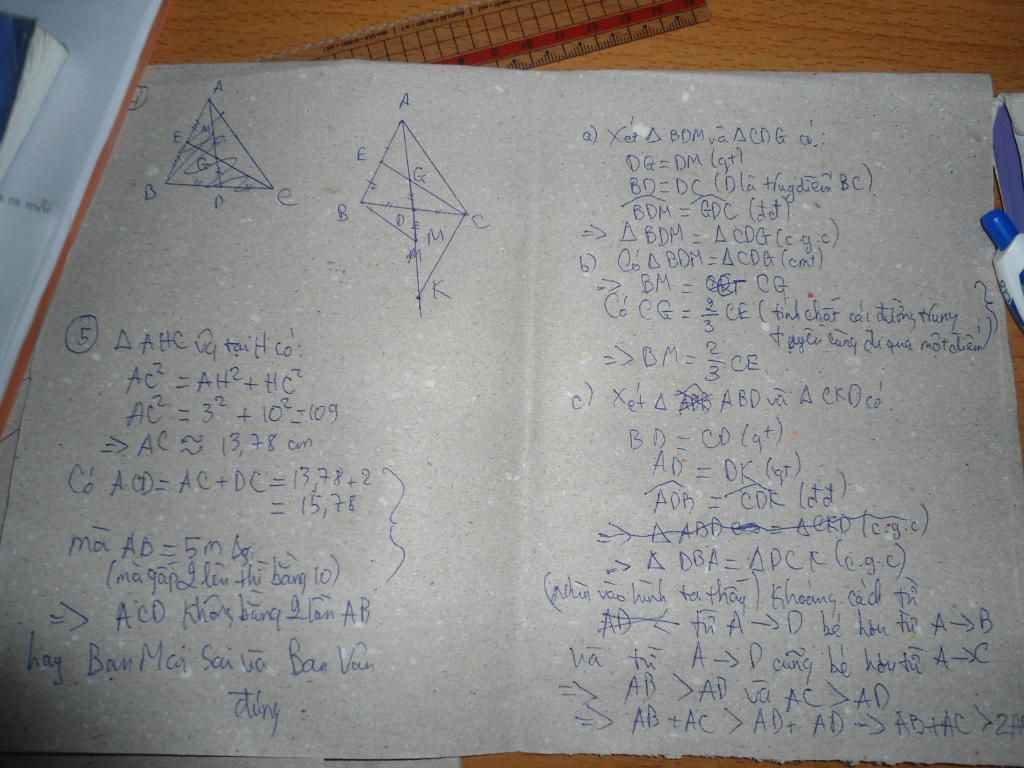 4)
A
E
M
G
B
D
C
A
E
G
B
D
C
M
K
⑤ Δ AHC vg tại H có:
AC² = AH² + HC²
AC² = 3² + 10² = 109
=> AC ≈ 13,78 cm
Có ACD = AC + DC = 13,78 + 2
= 15,78
mà AB = 5m
(mà gấp 2 lên thì bằng 10)
=> ACD không bằng 2 lần AB
hay Bạn Mai Sai và Bạn Vân
đúng
a) Xét Δ BDM và Δ CDG có:
DG = DM (gt)
BD = DC (D là trung điểm BC)
BDM = GDC (đđ)
=> Δ BDM = Δ CDG (c.g.c)
b) Có Δ BDM = Δ CDG (cmt)
=> BM = CG
Có CG = 2/3 CE (tính chất cái đường trung
tuyến cùng đi qua một điểm)
=> BM = 2/3 CE
c) Xét Δ ABD và Δ CKD có
BD = CD (gt)
AD = DK (gt)
ADB = CDK (đđ)
=> Δ ABD = Δ CKD (c.g.c)
=> Δ DBA = Δ DCK (c.g.c)
(nhìn vào hình ta thấy) Khoảng cách từ
từ A → D bé hơn từ A → B
và từ A → D cũng bé hơn từ A → C
=> AB > AD và AC > AD
=> AB + AC > AD + AD => AB + AC > 2A